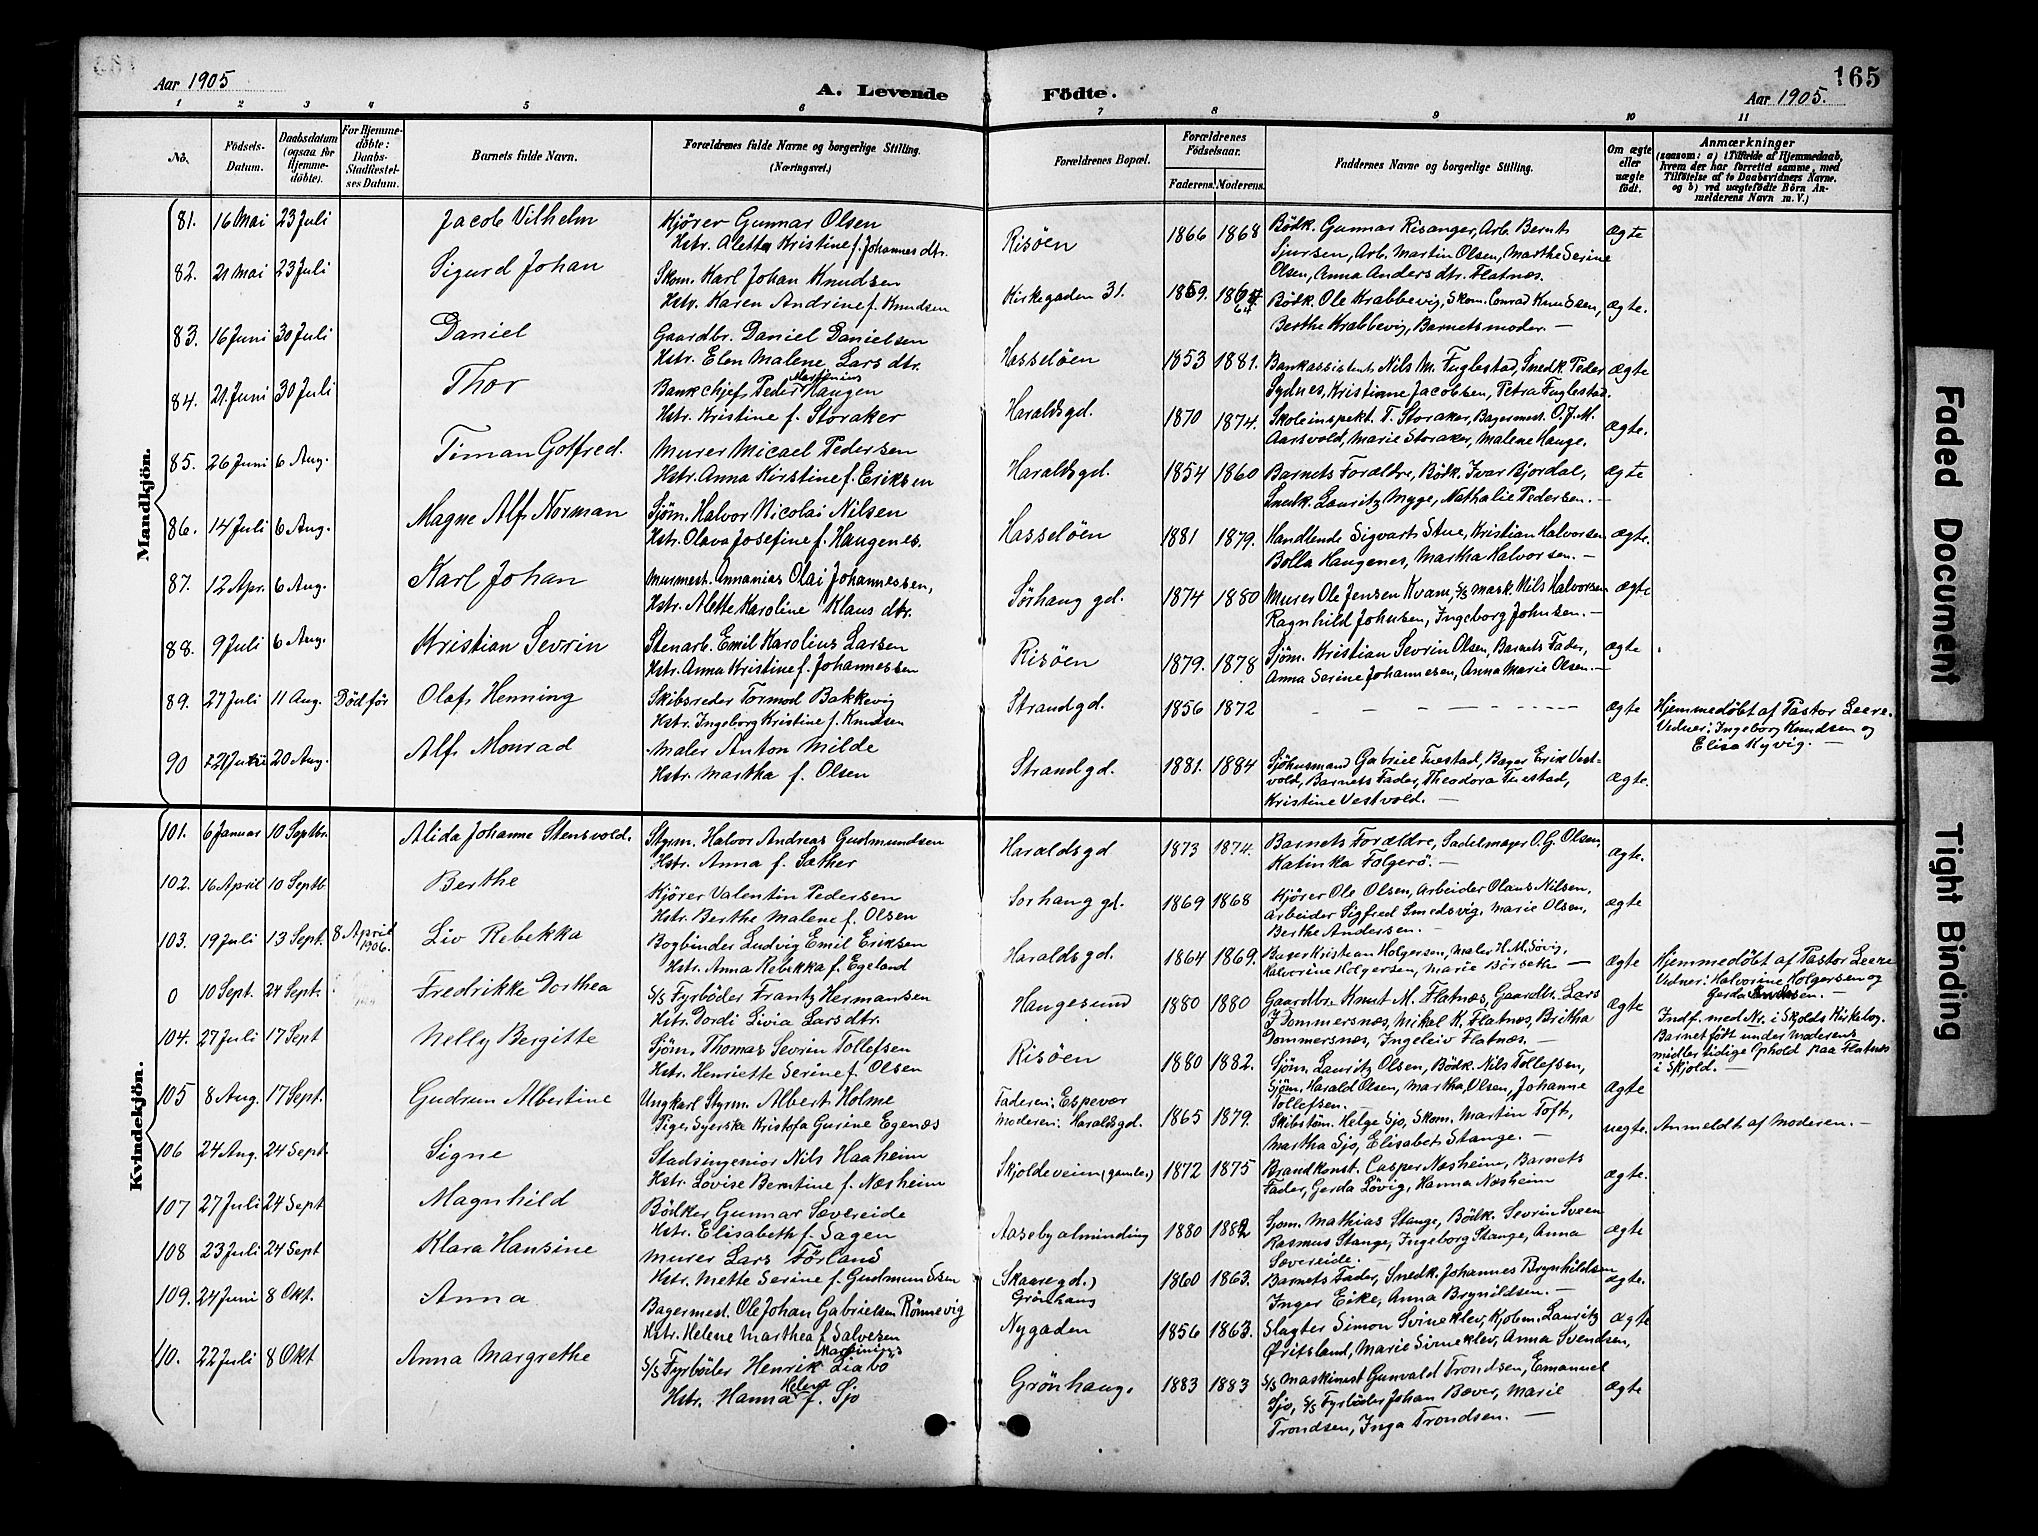 Aar 1905
A. Levende Födte.
165
Aar 1905.
1 2 3 4 5 6 7 8 9 10 11
No. Födsels-Datum. Daabsdatum (ogsaa for Hjemme-döbte). For Hjemme-döbte: Daabs-Stadfæstel-ses Datum. Barnets fulde Navn. Forældrenes fulde Navne og borgerlige Stilling. (Næringsvei.) Forældrenes Bopæl. Forældrenes Födselsaar. Faderens. Moderens. Faddernes Navne og borgerlige Stilling. Om ægte eller uægte födt. Anmærkninger
(saasom: a) i Tilfælde af Hjemmedaab, hvem der har forrettet samme, med Tilföielse af to Daabsvidners Navne. og b) ved uægtefödte Börn An-melderens Navn m. V.)
Mandkjön.
81. 16 Mai 23 Juli Jacob Vilhelm Kjörer Gunnar Olsen
Hstr. Aletta Kristine f. Johannesdtr. Risöen 1866 1868 Bödk. Gunnar Risanger, Arb. Bernt
Sjursen, Arb. Martin Olsen, Marthe Serine
Olsen, Anna Andersdtr. Flatnæs. Ægte
82. 21 Mai 23 Juli Sigurd Johan Skom. Karl Johan Knudsen
Hstr. Karen Andrine f. Knudsen Kirkegaden 31. 1859. 64 Bödk. Ole Krabbevig, Skom. Conrad Knudsen,
Berthe Krabbevig, Barnets moder. — ægte.
83. 16 Juni 30 Juli Daniel Gaardbr. Daniel Danielsen
Hstr. Elen Malene Larsdtr. Hasselöen 1853 1881. Bankassistent Nils M. Fuglestad, Snedk. Peder
Sydnes, Kristinne Jacobsen, Petra Fuglestad. ægte
84. 21 Juni 30 Juli Thor Bankchjef Peder Martinius Haugen
Hstr. Kristine f. Storaker Haraldsgd. 1870 1874. Skoleinspekt. T. Storaker, Bagermest. O. J. M.
Aarsvold, Marie Storaker, Malene Hauge. ægte.
85. 26 Juni 6 Aug. Timan Gotfred. Murer Micael Pedersen
Hstr. Anna Kirstine f. Eriksen Haraldsgd. 1854 1860 Barnets Forældre, Bödk. Ivar Bjordal,
Snedk. Lauritz Myge, Nathalie Pedersen. — ægte
86. 14 Juli 6 Aug. Magne Alf Norman Sjöm. Halvor Nicolai Nilsen
Hstr. Olava Josefine f. Haugenes. Hasselöen 1881 1879. Handlende Sigvart Stue, Kristian Halvorsen
Bolla Haugenes, Martha Halvorsen. — ægte.
87. 12 Apr. 6 Aug. Karl Johan Murmest. Annanias Olai Johannessen,
Hstr. Alette Karoline Klausdtr. Sörhauggd. 1874 1880 Murer Ole Jensen Kvam, S/S mask. Nils Halvorsen
Ragnhild Johnsen, Ingeborg Johnsen. — ægte
88. 9 Juli 6 Aug. Kristian Sevrin Stenarb. Emil Karolius Larsen
Hstr. Anna Kristine f. Johannessen Risöen 1879. 1878 Sjöm. Kristian Sevrin Olsen, Barnets Fader,
Anna Serine Johannesen, Anna Marie Olsen. — ægte
89. 27 Juli 11 Aug. Död för Olaf Henning Skibsreder Tormod Bakkevig
Hstr. Ingeborg Kristine f. Knudsen Strandgd. 1856 1872 ægte Hjemmedöbt af Pastor Leere.
Vidner: Ingeborg Knudsen og
Elisa Kyvig. —
90 20 Aug. Alf Monrad Maler Anton Milde
Hstr. Martha f. Olsen Strandgd. 1881. 1884 Sjöhusmand Gabriel Tuestad, Bager Erik Vest-
vold, Barnets Fader, Theodora Tuestad,
Kristine Vestvold. — Ægte.
Kvindekjön.
101. 6 Januar 10 Septbr. Alida Johanne Stensvold. Styrm. Halvor Andreas Gudmundsen
Hstr. Anna f. Sather Haraldsgd 1873 1874. Barnets Forældre, Sadelmager O. G. Olsen,
Katinka Folgerö. — ægte.
102. 16 April 10 Septb. Berthe Kjörer Valentin Pedersen
Hstr. Berthe Malene f. Olsen Sorhauggd. 1869 1868 Kjörer Ole Olsen, Arbeider Olaus Nilsen,
Arbeider Sigfred Smedsvig, Marie Olsen,
Berthe Andersen. — ægte
103. 19 Juli 13 Sept. 8 April 1906. Liv Rebekka Bogbinder Ludvig Emil Eriksen
Hstr. Anna Rebekka f. Egeland Haraldsgd. 1864 1869. Baser Kristian Holgersen, Maler H. M. Sövig,
Halvorine Holgersen, Marie Börseth — ægte Hjemmedöbt af Pastor Leere
Vidner: Halvorine Holgersen og
Gerda. —
0 10 Sept. 24 Sept. Fredrikke Dorthea S/S Fyrböder Frantz Hermansen
Hstr. Dordi Livia Larsdtr. Haugesund 1880 1880 Gaardbr. Knut M. Flatnæs, Gaardbr. Lars
J Dommersnæs, Mikal K. Flatnæs, Britha
Dommersnæs, Ingeleiv Flatnæs. — ægte Indf. med No. i Skjolds Kirkebog.
Barnet födt under Moderens
midlertidige Ophold paa Flatnæs
i Skjold. —
104. 27 Juli 17 Sept Nelly Bergitte Sjöm. Thomas Sevrin Tollefsen
Hstr. Henriette Serine f. Olsen Risöen 1880 1882. Sjöm. Lauritz Olsen, Bödk. Nils Tollefsen,
Sjöm. Harald Olsen, Martha Olsen, Johanne
Tollefsen. — ægte
105 8 Aug. 17 Sept. Gudrun Albertine Ungkarl Styrm. Albert Holme
Pige, Syerske Kristofa Gurine Egenæs Faderen: Espevær
Moderen: Haraldsgd. 1865 1879. Skibstöm. Helge Sjo, Skom. Martin Toft,
Martha Sjo, Elisabet Stange. — uægte. Anmeldt af Moderen. —
106 24 Aug. 24 Sept. Signe Stadsingeniör Nils Haaheim
Hstr. Lovise Berntine f. Næsheim Skjoldeveien (gamle.) 1872 1875 Brandkonst. Casper Næsheim, Barnets
Fader, Gerda Lövig, Hanna Næsheim ægte.
107 27 Juli 24 Sept Magnhild Bödker Gunnar Sævereide
Hstr. Elisabeth f. Sagen Aasebyalminding 1880 1882 Sjöm. Mathias Stange, Bödk. Sevrin Sveen
Rasmus Stange, Ingeborg Stange, Anna
Sævereide. — ægte
108 23 Juli 24 Sept Klara Hansine Murer Lars Förland
Hstr. Mette Serine f. Gudmundsen (Skaaregd.)
Grönhaug 1860 1863. Barnets Fader, Snedk. Johannes Brynhildsen
Inger Eike, Anna Brynildsen. — ægte.
109. 24 Juni 8 Okt. Anna Bagermest. Ole Johan Gabrielsen Rönnevig
Hstr. Helene Marthea f. Salvesen Nygaden 1856 1863. Slagter Simon Svineklev, Kjöbm. Lauritz
Öritsland, Marie Svineklev, Anna Svendsen, ægte
110. 22 Juli 8 Okt Anna Margrethe S/S Fyrböder Henrik Martinius Liabö
Hstr. Hanna Helena f. Sjo Grönhaug. 1883 1883 S/S Maskinist Gunvald Trondsen, Emanuel
Sjo, S/S Fyrböder Johan Bæver, Marie
Trondsen, Inga Trondsen. — ægte
Faded Document
Tight Binding